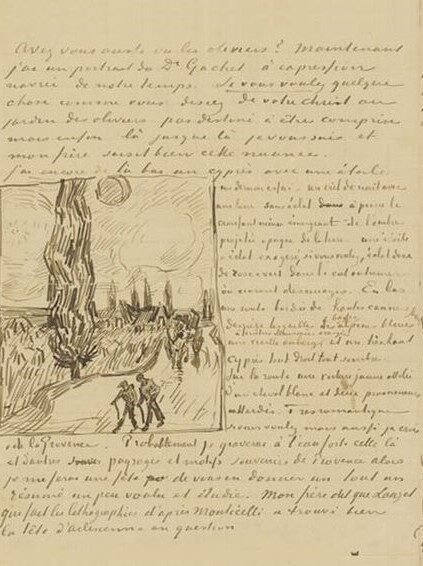 Avez vous aussi vu les oliviers? Maintenant
j'ai un portrait du Dr Gachet à expression
navrée de notre temps. Si vous voulez quelque
chose comme vous disiez de votre Christ au
jardin des oliviers pas destiné à être compris
mais enfin là jusque là je vous suis et
mon frère saisit bien cette nuance.
j'ai encore de là bas un cyprès avec une étoile
un dernier essai – un ciel de nuit avec
une lune sans éclat à peine le
croissant mince émergeant de l'ombre
projetée opaque de la terre – une étoile
à éclat exagéré, si vous voulez, éclat doux
de rose & vert dans le ciel outremer
où courent des nuages. En bas
une route bordée de hautes cannes
derrière lesquelles les basses alpines bleues
une vieille auberge à fenetres illuminées orangée et un très haut
cyprès tout droit tout sombre.
Sur la route une voiture jaune attelée
d'un cheval blanc et deux promeneurs
attardés. Tres romantique
si vous voulez mais aussi je crois
de la Provence. Probablement je graverai à l'eau forte celle là
et d'autres paysages et motifs souvenirs de Provence alors
je me ferai une fête de vous en donner un tout un
résumé un peu voulu et étudié. Mon frère dit que Lauzet
qui fait les lithographies d'après Monticelli a trouvé bien
la tête d'arlesienne en question